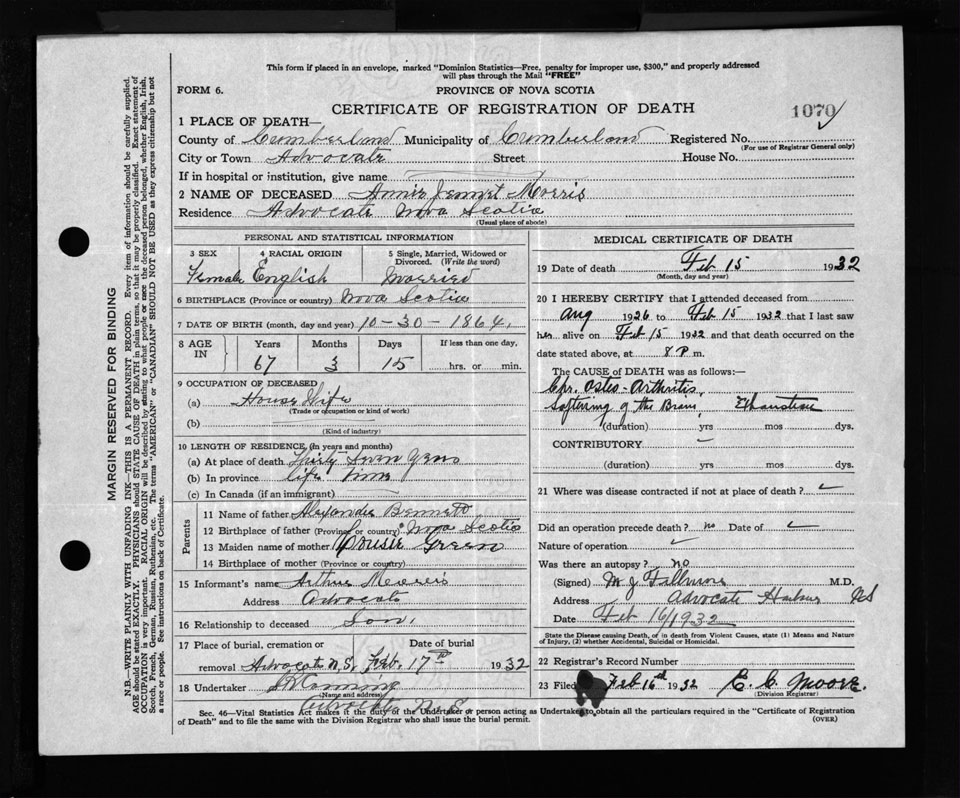 This form if placed in an envelope, marked "Dominion Statistics—Free, penalty for improper use, $300," and properly addressed
will pass through the Mail "FREE"
FORM 6.
PROVINCE OF NOVA SCOTIA
CERTIFICATE OF REGISTRATION OF DEATH
1070
1 PLACE OF DEATH—
County of Cumberland Municipality of Cumberland Registered No.
(For use of Registrar General only)
City or Town Advocate Street House No.
If in hospital or institution, give name
2 NAME OF DECEASED Annie Jennet Morris
Residence Advocate Nova Scotia
(Usual place of abode)
PERSONAL AND STATISTICAL INFORMATION
3 SEX 4 RACIAL ORIGIN 5 Single, Married, Widowed or
Divorced. (Write the word)
Female English Married
6 BIRTHPLACE (Province or country) Nova Scotia
7 DATE OF BIRTH (month, day and year) 10-30-1864,
8 AGE
IN
Years Months Days If less than one day,
67 3 15 hrs. or min.
9 OCCUPATION OF DECEASED
(a) House Wife
(Trade or occupation or kind of work)
(b)
(Kind of industry)
10 LENGTH OF RESIDENCE (In years and months)
(a) At place of death Thirty Seven Years
(b) In province life time
(c) In Canada (if an immigrant)
Parents
11 Name of father Alexander Bennett
12 Birthplace of father (Province or country) Nova Scotia
13 Maiden name of mother Green
14 Birthplace of mother (Province or country)
15 Informant's name Arthur Morris
Address Advocate
16 Relationship to deceased Son,
17 Place of burial, cremation or Date of burial
removal Advocate N.S. Feb. 17th 1932
18 Undertaker
(Name and address)
Advocate N.S.
MEDICAL CERTIFICATE OF DEATH
19 Date of death Feb 15 1932
(Month, day and year)
20 I HEREBY CERTIFY that I attended deceased from
Aug 1926 to Feb 15 1932 that I last saw
her alive on Feb 15 1932 and that death occurred on the
date stated above, at 8 P m.
The CAUSE OF DEATH was as follows:—
Chr. Osteo-Arthritis
Softening of the Brain, Exhaustion
(duration) yrs mos dys.
CONTRIBUTORY
(duration) yrs mos dys.
21 Where was disease contracted if not at place of death?
Did an operation precede death? no Date of
Nature of operation
Was there an autopsy? no
(Signed) M J Fillmore M.D.
Address Advocate Harbour NS
Date Feb 16/1932
State the Disease causing Death, or in death from Violent Causes, state (1) Means and Nature
of Injury, (2) whether Accidental, Suicidal or Homicidal.
22 Registrar's Record Number
23 Filed Feb 16th 1932 E. C. Moore.
(Division Registrar)
Sec. 46—Vital Statistics Act makes it the duty of the Undertaker or person acting as Undertaker to obtain all the particulars required in the "Certificate of Registration
of Death" and to file the same with the Division Registrar who shall issue the burial permit.
(OVER)
MARGIN RESERVED FOR BINDING
N.B.—WRITE PLAINLY WITH UNFADING INK—THIS IS A PERMANENT RECORD. Every item of information should be carefully supplied.
AGE should be stated EXACTLY. PHYSICIANS should STATE CAUSE OF DEATH in plain terms, so that it may be properly classified. Exact statement of
OCCUPATION is very important. RACIAL ORIGIN will be described by stating to what people or race the deceased person belonged, whether English, Irish,
Scotch, French, German, Russian, Ruthenian, etc. The terms "AMERICAN" or "CANADIAN" SHOULD NOT BE USED as they express citizenship but not
a race or people. See instructions on back of Certificate.